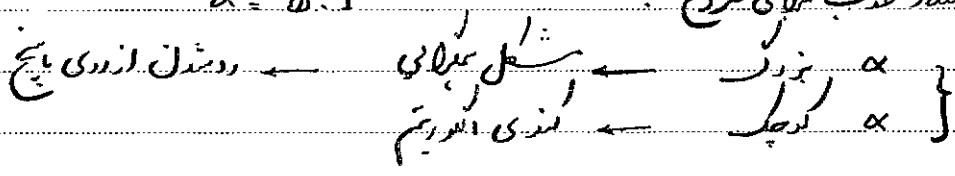 α بزرگ ← مشکل همگرایی ← رد شدن از روی پاسخ
α کوچک ← کندی الگوریتم